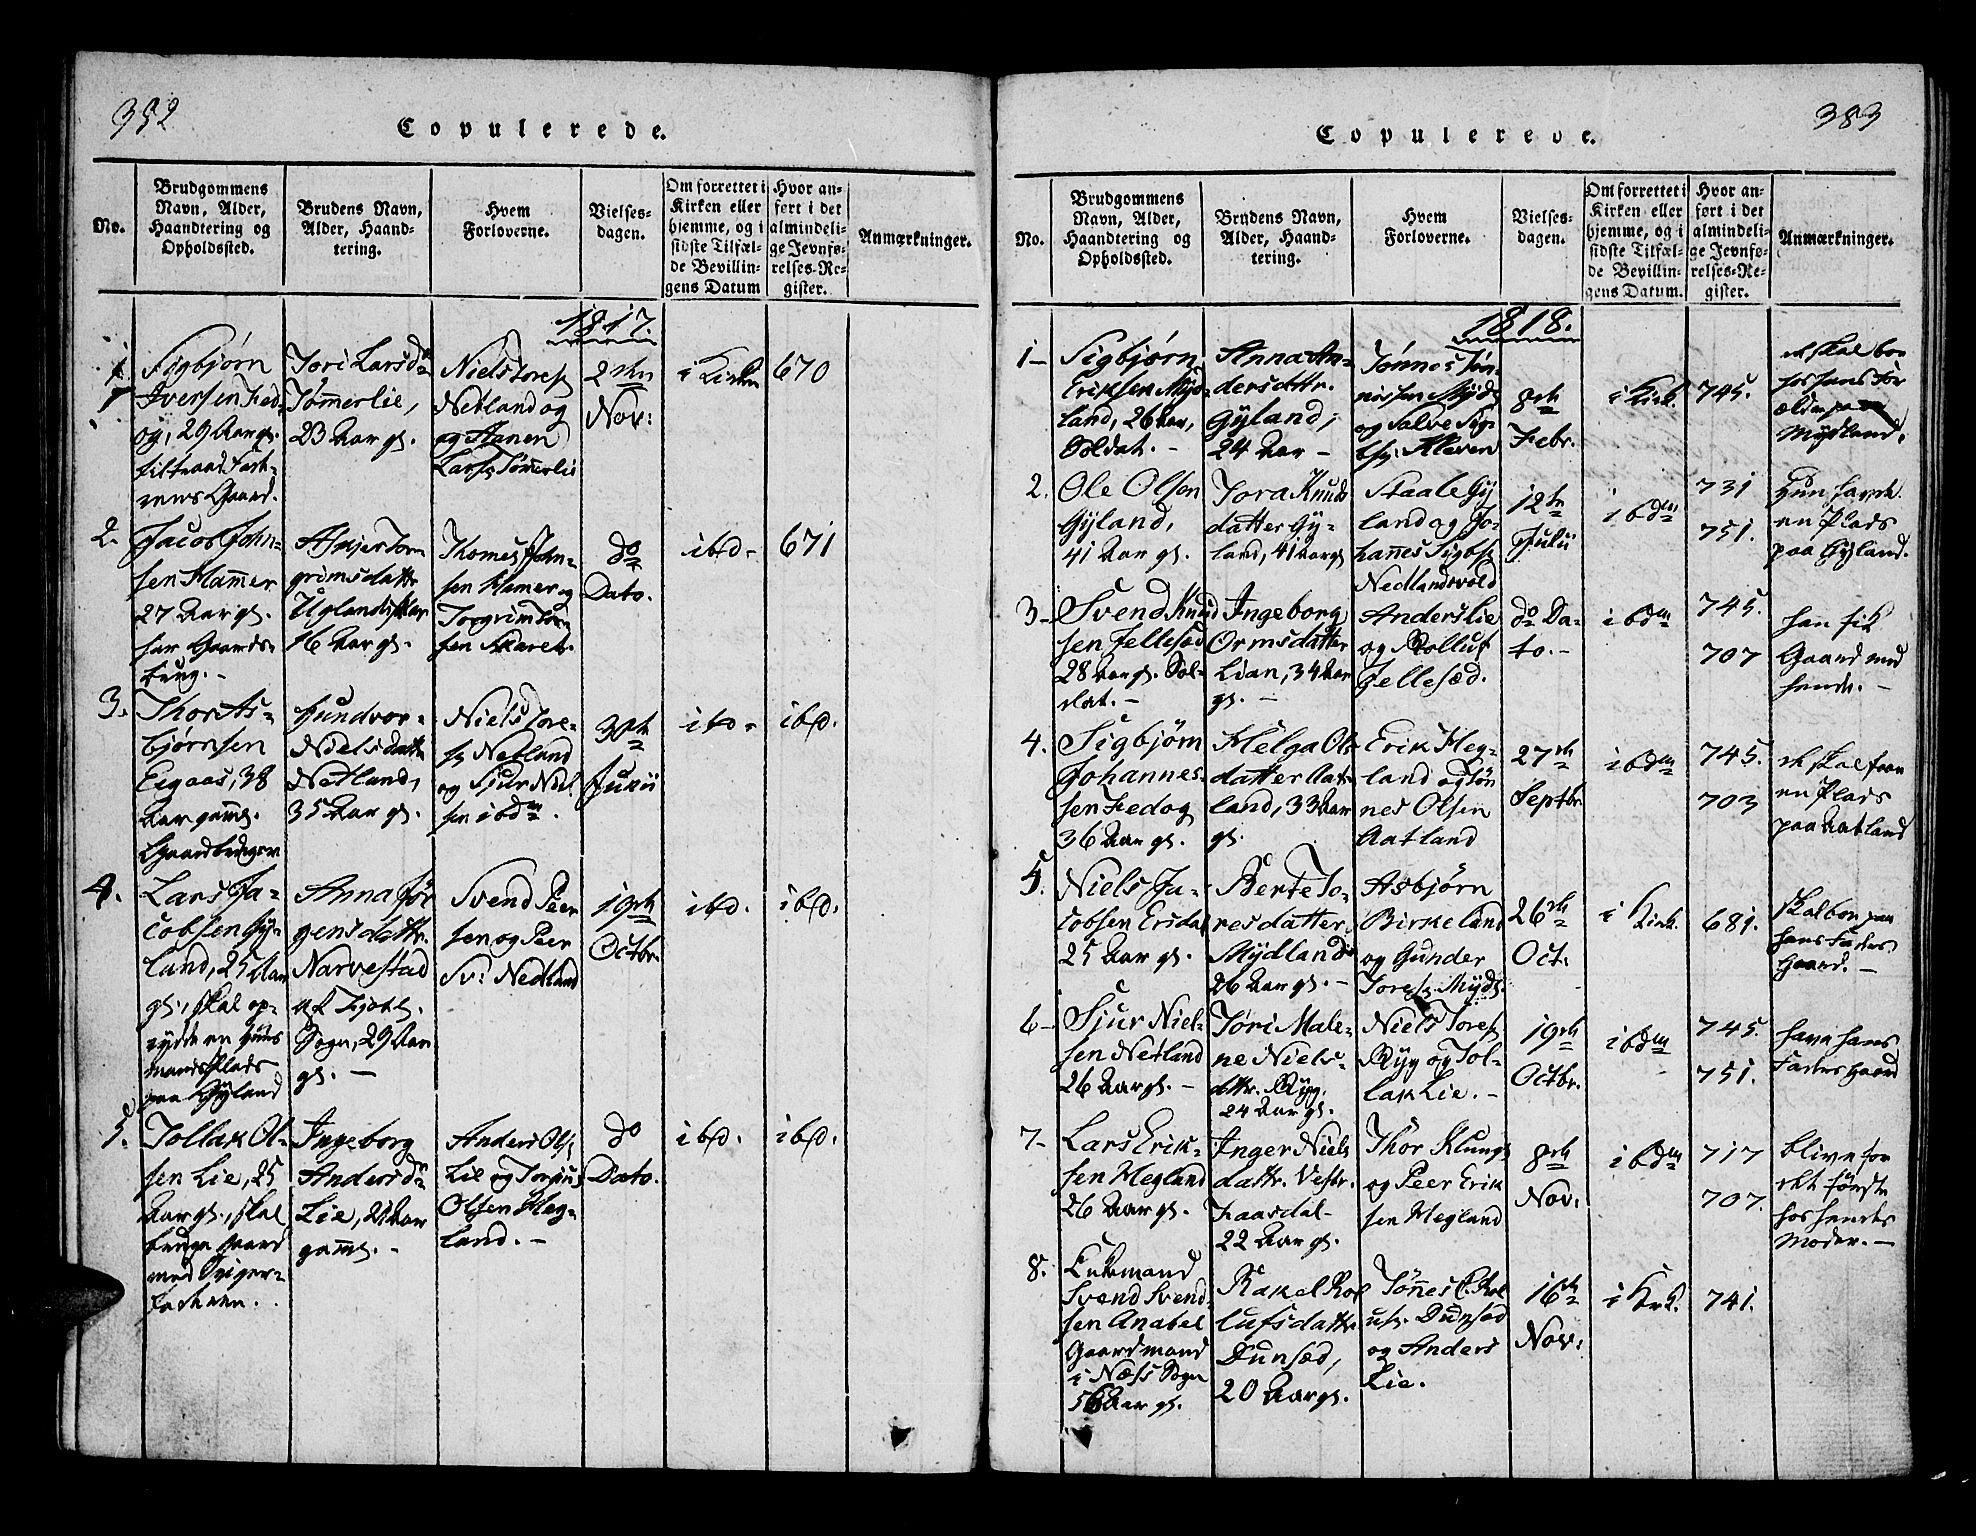 352
Copulerede.
No.
Brudgommens
Navn, Alder,
Haandtering og
Opholdssted.
Brudens Navn,
Alder, Haand-
tering.
Hvem
Forloverne.
Vielses-
dagen.
Om forrettet i
Kirken eller
hjemme, og i
sidste Tilfæl-
de Bevillin-
gens Datum
Hvor an-
ført i det
almindeli-
ge Jevnfø-
relses-Re-
gister.
Anmærkninger.
1817.
1.
Sigbjørn
Iversen Fed-
og, 29 Aar gl.
Gaard.
Tori Larsdr
Tømmerlie,
23 Aar gl.
Niels Tores
Netland og
og Aanen
Lars. Tømmerlie
2den
Nov:
i Kirken
670
2.
Jacob John-
sen Hammer
27 Aar gl.
har Gaards-
brug. -
Asker Torn
grimsdattr
Ugland
16 Aar gl.
Thomes John-
sen Hamer og
Torgrim
sen Skaret.
do
Dato.
ibd-
671
3.
Thor As-
bjørnsen
Eigaas, 38
Aar gaml.
Gaardbruger
Gundvor
Nielsdattr
Netland,
35 Aar gl.
Niels Tore-
s. Netland
og Sjur Niel
sen ibdm.
30th
Junii
ibd-
ibd.
4.
Lars Ja-
cobsen Gy-
land, 25 Aar
gl., skal op-
rydde en Huus
mandsplads
paa Gyland
Anna Jør
gensdattr.
Narvestad
af
Sogn, 29 Aar
gl. -
Svend Peer
sen og Peer
Sv: Nedland
19th
Octbr.
ibd.
ibd.
5.
Tollak Ol-
sen Lie, 25
Aar gl., skal
bruge Gaard
med Sviger-
faderen.
Ingeborg
Andersdr
Lie, 21 Aar
gaml. -
Anders Ols
Lie og Torjus
Olsen Heg-
land. -
do
Dato.
ibd.
ibd.
383
Copulerede.
No.
Brudgommens
Navn, Alder,
Haandtering og
Opholdssted.
Brudens Navn,
Alder, Haand-
tering.
Hvem
Forloverne.
Vielses-
dagen.
Om forrettet i
Kirken eller
hjemme, og i
sidste Tilfæl-
de Bevillin-
gens Datum.
Hvor an-
ført i det
almindeli-
ge Jevnfø-
relses-Re-
gister.
Anmærkninger.
1818.
1-
Sigbjørn
Eriksen Myd-
land, 26 Aar,
Soldat. -
Anna An-
dersdattr.
Gyland,
24 Aar -
Tønnes Tøn-
nessen Mydl
og Salve Sig-
bs. Kleven
8th
Febr.
i Kirk.
745.
skal boe
hos hans For
ældre paa
Mydland.
2.
Ole Olsen
Gyland,
41 Aar gl.
Tora Knuds
datter Gy-
land, 41 Aar gl
Staale Gy
land og Jo-
hannes Sigbs.
Nedlandsvold
12te
Julii
ibdm
731
751.
Hun havde
en Plads
paa Gyland.
3-
Svend Knud
sen Fellesæd
28 Aar gl. Sol-
dat. -
Ingeborg
Ormsdatter
Lian, 34 Aar
gl. -
Anders Lie
og Rolluf
Fellesæd.
do Da-
to. -
ibdm
745.
707
han fik
Gaard med
hende. -
4.
Sigbjørn
Johannes
sen Fedog
36 Aar gl.
Helga Ols
datter Aat-
land, 33 Aar
gl.
Erik Heg-
land og Tøn
nes Olsen
Aatland
27th
Septbr.
ibdm
745.
703
skal faae
en Plads
paa Aatland
5.
Niels Ja-
cobsen Ersdal
25 Aar gl.
Berte To-
resdatter
Mydland
26 Aar gl. -
Asbjørn
Birkeland
og Gunder
Tores. Mydl.
26th
Oct.
i Kirk.
681.
skal boe paa
hans Faders
Gaard. -
6-
Sjur Niel-
sen Netland
26 Aar gl. -
Tøri Male-
ne Niels-
dttr. Ryg,
24 Aar gl.
Niels Tores
Ryg og Tol-
lak Lie. -
19th
Octbr.
ibdm
745.
751.
have hans
Faders Gaard
7-
Lars Erik-
sen Hegland
26 Aar gl.
Inger Niels
dattr. Vestr.
Faasdal-
22 Aar gl.
Thor Klungl
og Peer Erik
sen Hegland
8th
Nov:
ibdm
717
707.
blive for
det første
hos hendes
Moder. -
8.
Enkemand
Svend Svend-
sen Anabel
Gaardmand
i Næss Sogn
56 Aar gl.
Rakel Rol
lufsdattr
Dunsæd,
20 Aar gl.
Tønnes Rol
ufs. Dunsæd
og Anders
Lie.
16th
Nov:
i Kirk.
741.